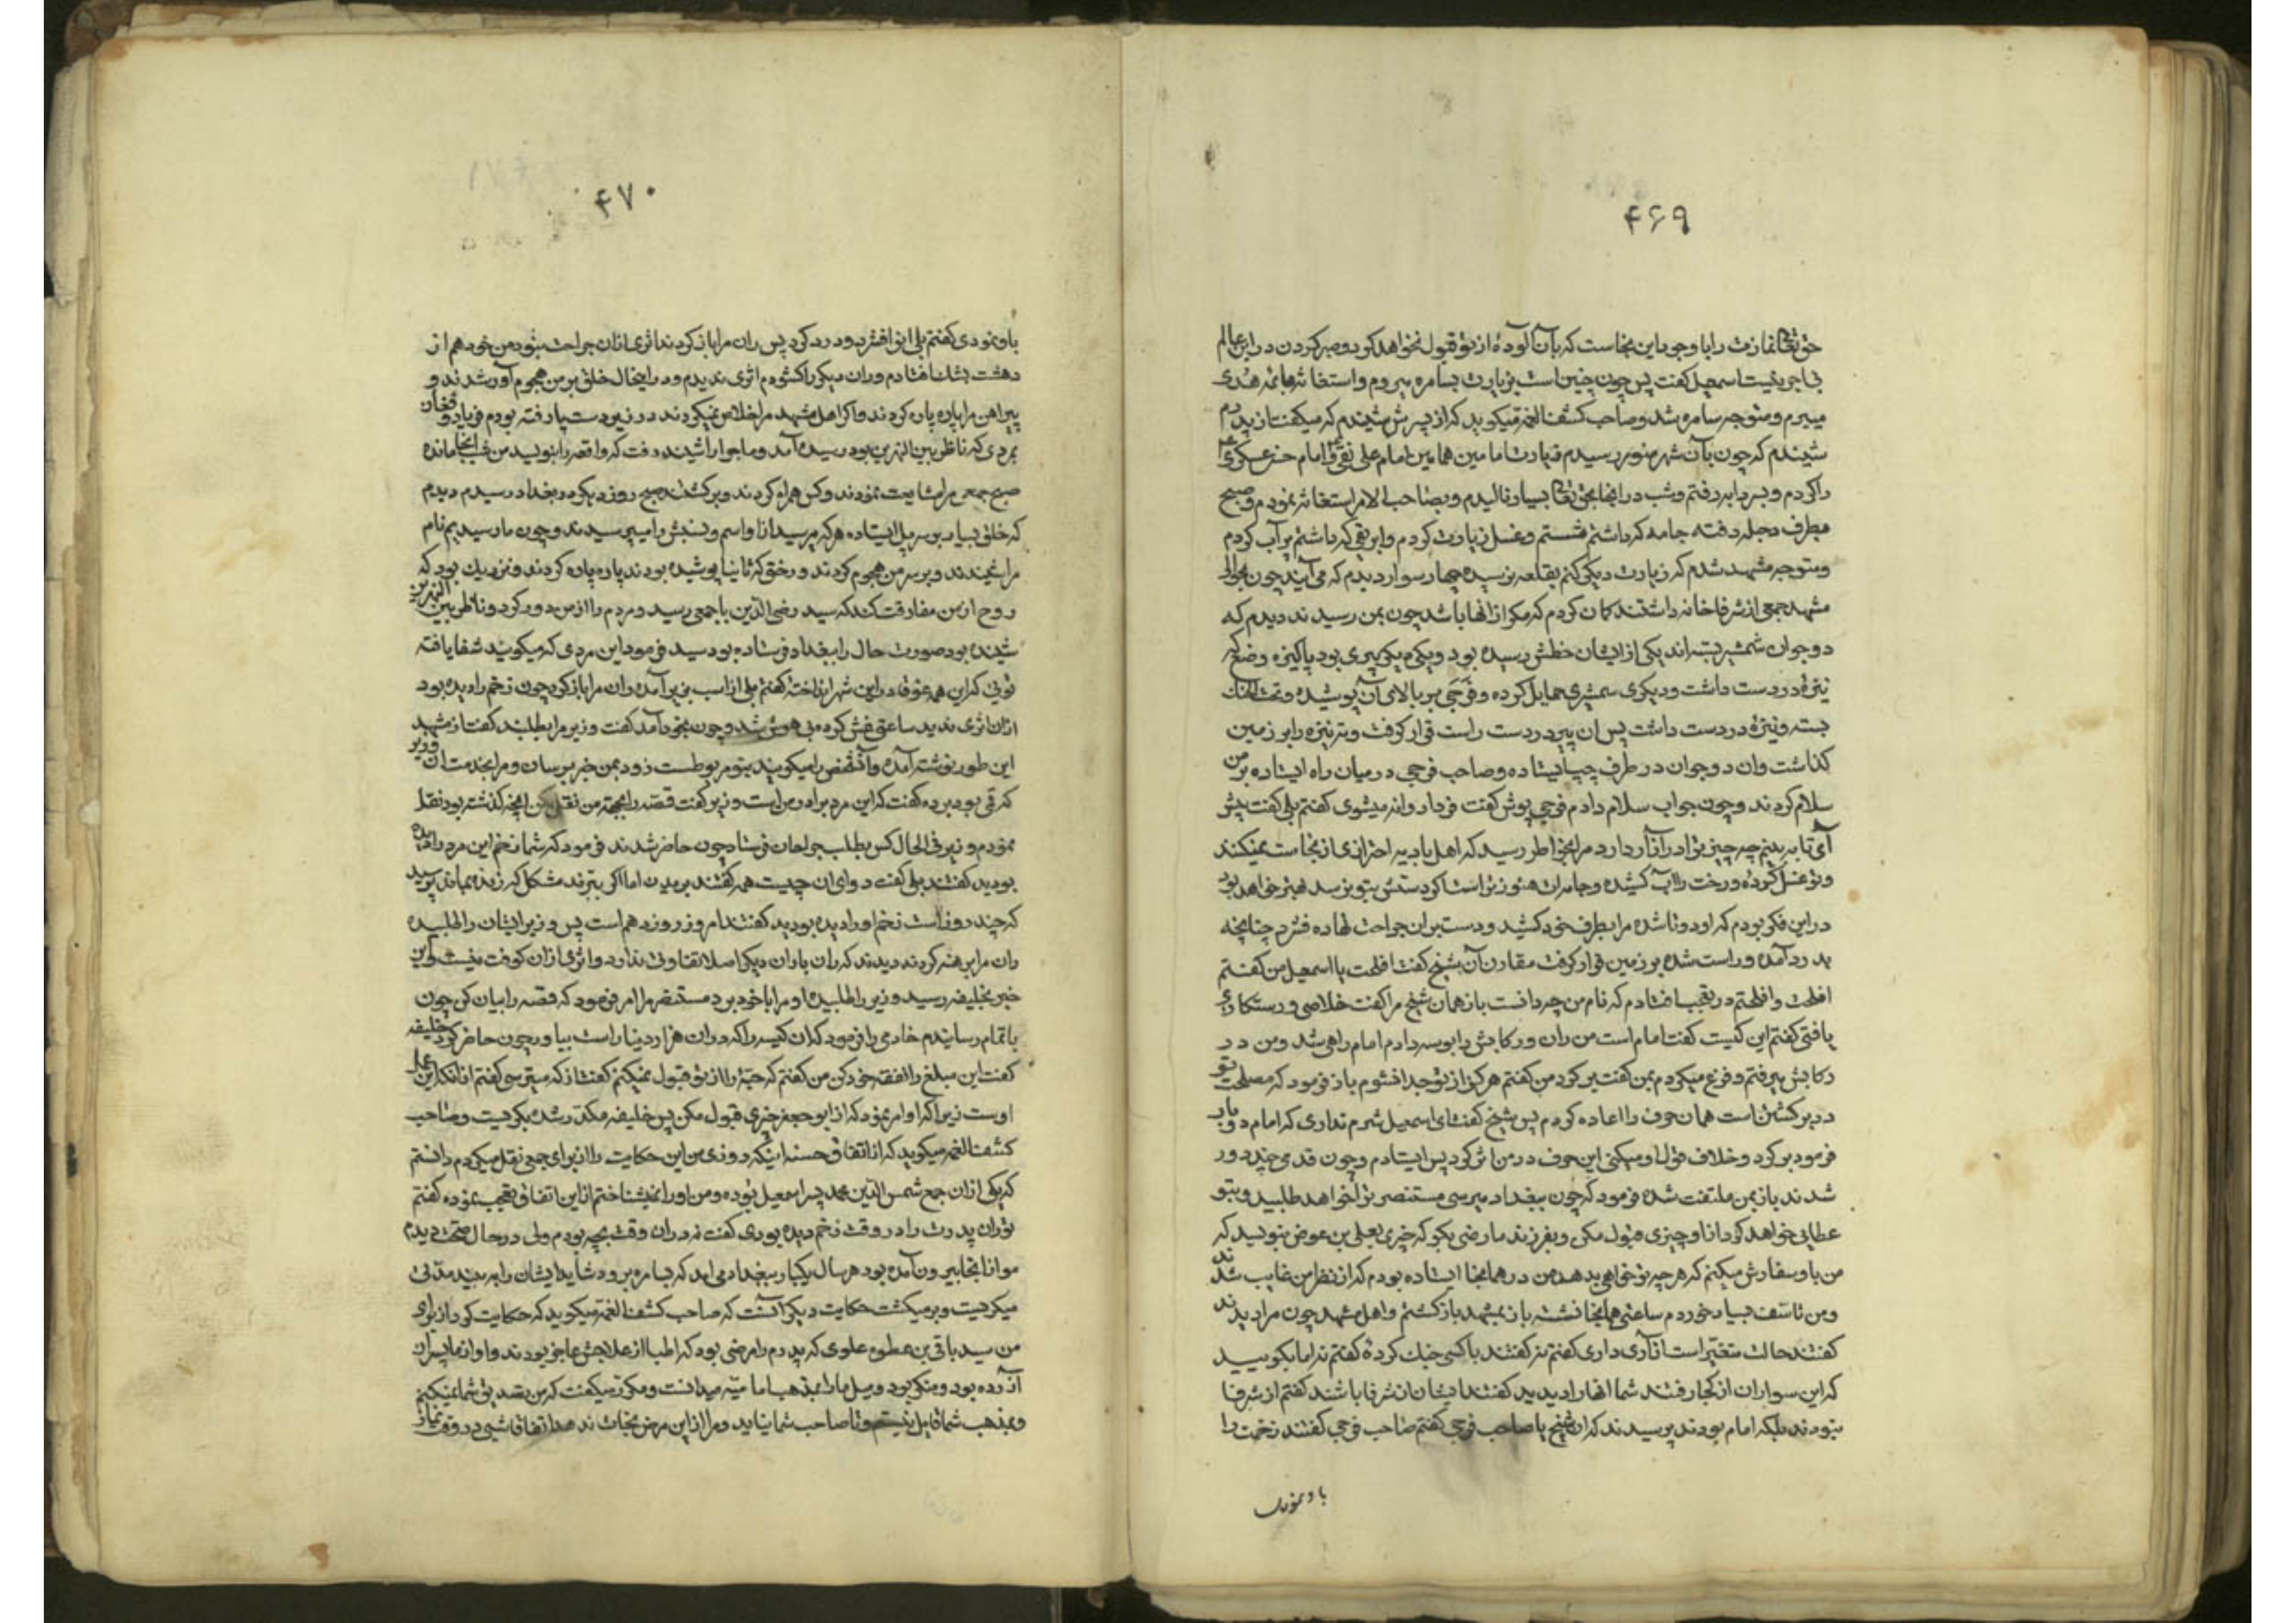 ۴۶۹
حق تعالی نمازت را با وجود این نجاست که بآن آلودهٔ از تو قبول نخواهد کرد و صبر کردن در این عالم
بی اجری نیست اسمعیل گفت پس چون چنین است بزیارت بسامره میروم و استغاثه بائمه هدی
میبرم و متوجه سامره شد و صاحب کشف الغمه میگوید که از پسرش شنیدم که میگفت از پدرم
شنیدم که چون بآن شهر منور رسیدم زیارت امامین همامین امام علی نقی و امام حسن عسکری
را کردم و بسردابه رفتم و شب در آنجا بحق تعالی بسیار نالیدم و بصاحب الامر استغاثه نمودم و صبح
بطرف دجله رفته جامه که داشتم شستم و غسل زیارت کردم و ابریقی که داشتم پر آب کردم
و متوجه مشهد شدم که زیارت دیگر کنم بقلعه نرسیده چهار سوار دیدم که می آیند چون بحوالی
مشهد جمعی از شرفا خانه داشتند کمان کردم که مگر از آنها باشد چون بمن رسیدند دیدم که
دو جوان شمشیر بسته اند یکی از ایشان خطش رسیده بود و یکی پیری بود پاکیزه وضع که
نیزهٔ در دست داشت و دیگری شمشیری حمایل کرده و فرجی بر بالای آن پوشیده و تحت الحنک
بسته و نیزهٔ در دست داشت پس آن پیر در دست راست قرار گرفت و ته نیزه را بر زمین
گذاشت و آن دو جوان در طرف چپ ایستاده و صاحب فرجی در میان راه ایستاده بر من
سلام کردند و چون جواب سلام دادم فرجی پوش گفت فردا روانه میشوی گفتم بلی گفت پیش
آی تا به بینم چه چیز ترا در آزار دارد مرا بخاطر رسید که اهل بادیه احترازی از نجاست نمیکنند
و تو غسل کردهٔ و رخت را آب کشیده و جامه ات هنوز تر است اگر دستش بتو نرسد بهتر خواهد بود
در این فکر بودم که او دوتا شده مرا بطرف خود کشید و دست بر آن جراحت نهاده فشرد چنانچه
بدرد آمد و راست شده بر زمین قرار گرفت مقارن آن شیخ گفت افلحت یا اسمعیل من گفتم
افلحت و افلحتم در تعجب افتادم که نام من چه دانست باز همان شیخ مرا گفت خلاصی و رستگاری
یافتی گفتم این کیست گفت امام است من ران و رکابش را بوسه دادم امام راهی شد و من در
رکابش میرفتم و فزع میکردم بمن گفت برگرد من گفتم هرگز از تو جدا نشوم باز فرمود که مصلحت تو
در برگشتن است همان حرف را اعاده کردم پس شیخ گفت ای اسمعیل شرم نداری که امام دو بار
فرمود برگرد و خلاف قول او میکنی این حرف در من اثر کرد پس ایستادم و چون قدمی چند دور
شدند باز بمن ملتفت شده فرمود که چون ببغداد میرسی مستنصر ترا خواهد طلبید و بتو
عطایی خواهد کرد از او چیزی قبول مکن و بفرزند ما رضی بگو که چیزی بعلی بن عوض بنویسد که
من باو سفارش میکنم که هر چه تو خواهی بدهد من در همانجا ایستاده بودم که از نظر من غایب شدند
و من تاسف بسیار خوردم ساعتی همانجا نشسته باز بمشهد باز گشتم و اهل مشهد چون مرا دیدند
گفتند حالت متغیر است آزاری داری گفتم نه گفتند با کسی جنگ کردهٔ گفتم نه اما بگویید
که این سواران از کجا رفتند شما آنها را دیدید گفتند ایشان از شرفا باشند گفتم از شرفا
نبودند بلکه امام بودند پرسیدند که آن شیخ یا صاحب فرجی گفتم صاحب فرجی گفتند زخمت را
باو نمودی
۴۷۰
باو نمودی گفتم بلی آنرا فشرد و درد کرد پس ران مرا باز کردند اثری از آن جراحت نبود من خود هم از
دهشت بشک افتادم و ران دیگر را گشودم اثری ندیدم و در اینحال خلق بر من هجوم آوردند و
پیراهن مرا پاره پاره کردند و اگر اهل مشهد مرا خلاص نمیکردند در زیر دست و پا رفته بودم فریاد و فغان
بمردی که ناظر بین النهرین بود رسیده آمد و ماجرا را شنید و رفت که واقعه را بنویسد من شب آنجا مانده
صبح جمعی مرا مشایعت نمودند و کس همراه کردند و برگشتند صبح روز دیگر در بغداد رسیدم دیدم
که خلق بسیار بر سر پل ایستاده هر که میرسید از او اسم و نسبش را میپرسیدند و چون ما رسیدیم نام
مرا شنیدند و بر سر من هجوم کردند و رختی که ثانیا پوشیده بودم پاره پاره کردند و نزدیک بود که
روح از من مفارقت کند که سید رضی الدین با جمعی رسید و مردم را از من دور کرد و ناظر بین النهرین
شنیده بود صورت حال را ببغداد فرستاده بود سید فرمود این مردی که میگویند شفا یافته
تویی که این همه غوغا در این شهر انداختهٔ گفتم بلی از اسب بزیر آمده ران مرا باز کرد چون زخم را دیده بود
از آن اثری ندید ساعتی غش کرده بی هوش شد و چون بخود آمد گفت وزیر مرا طلبید گفت از مشهد
این طور نوشته آمده و آن شخص را میگویند بتو مربوطست زود بمن خبر برسان و مرا بخدمت آن وزیر
که قمی بود برده گفت که این مرد برادر من است وزیر گفت قصه را بجهة من نقل کن آنچه گذشته بود نقل
نمودم وزیر فی الحال کس بطلب جراحان فرستاد چون حاضر شدند فرمود که شما زخم این مرد را دیده
بودید گفتند بلی گفت دوای آن چیست همه گفتند بریدن اما اگر ببرند مشکل که زنده بماند پرسید
که چند روز است زخم او را دیده بودید گفتند امروز روز دهم است پس وزیر ایشان را طلبیده
ران مرا برهنه کردند دیدند که ران با ران دیگر اصلا تفاوتی ندارد و اثری از آن کوفت نیست و این
خبر بخلیفه رسید وزیر را طلبیده او مرا با خود برد مستنصر مرا امر فرمود که قصه را بیان کن چون
باتمام رسانیدم خادمی را فرمود که آن کیسه را که در آن هزار دینار است بیاور چون حاضر کرد خلیفه
گفت این مبلغ را نفقه خود کن من گفتم که حبهٔ را از تو قبول نمیکنم گفت از که میترسی گفتم از آنکه این عمل
اوست زیرا که او امر نمود که از ابو جعفر چیزی قبول مکن پس خلیفه مکدر شده بگریست و صاحب
کشف الغمه میگوید که از اتفاق حسنه اینکه روزی من این حکایت را از برای جمعی نقل میکردم دانستم
که یکی از آن جمع شمس الدین محمد پسر اسمعیل بوده و من او را نمیشناختم از این اتفاق تعجب نموده گفتم
تو ران پدرت را در وقت زخم دیده بودی گفت نه در آن وقت بچه بودم ولی در حال صحت دیدم
مو از آنجا بیرون آمده بود هر سال یکبار ببغداد می آمد که بسامره برود شاید ایشان را به بیند مدتی
میگریست و بر میگشت حکایت دیگر آنست که صاحب کشف الغمه میگوید که حکایت کرد از برای
من سید باقی بن عطوه علوی که پدرم را مرضی بود که اطبا از علاجش عاجز بودند و او از ما پسران
آزرده بود و منکر بود و میل ما را بمذهب امامیه میدانست و مکرر میگفت که من تصدیق شما نمیکنم
و بمذهب شما قایل نیستم و تا صاحب شما نیاید و مرا از این مرض نجات ندهد اتفاقا شبی در وقت نماز